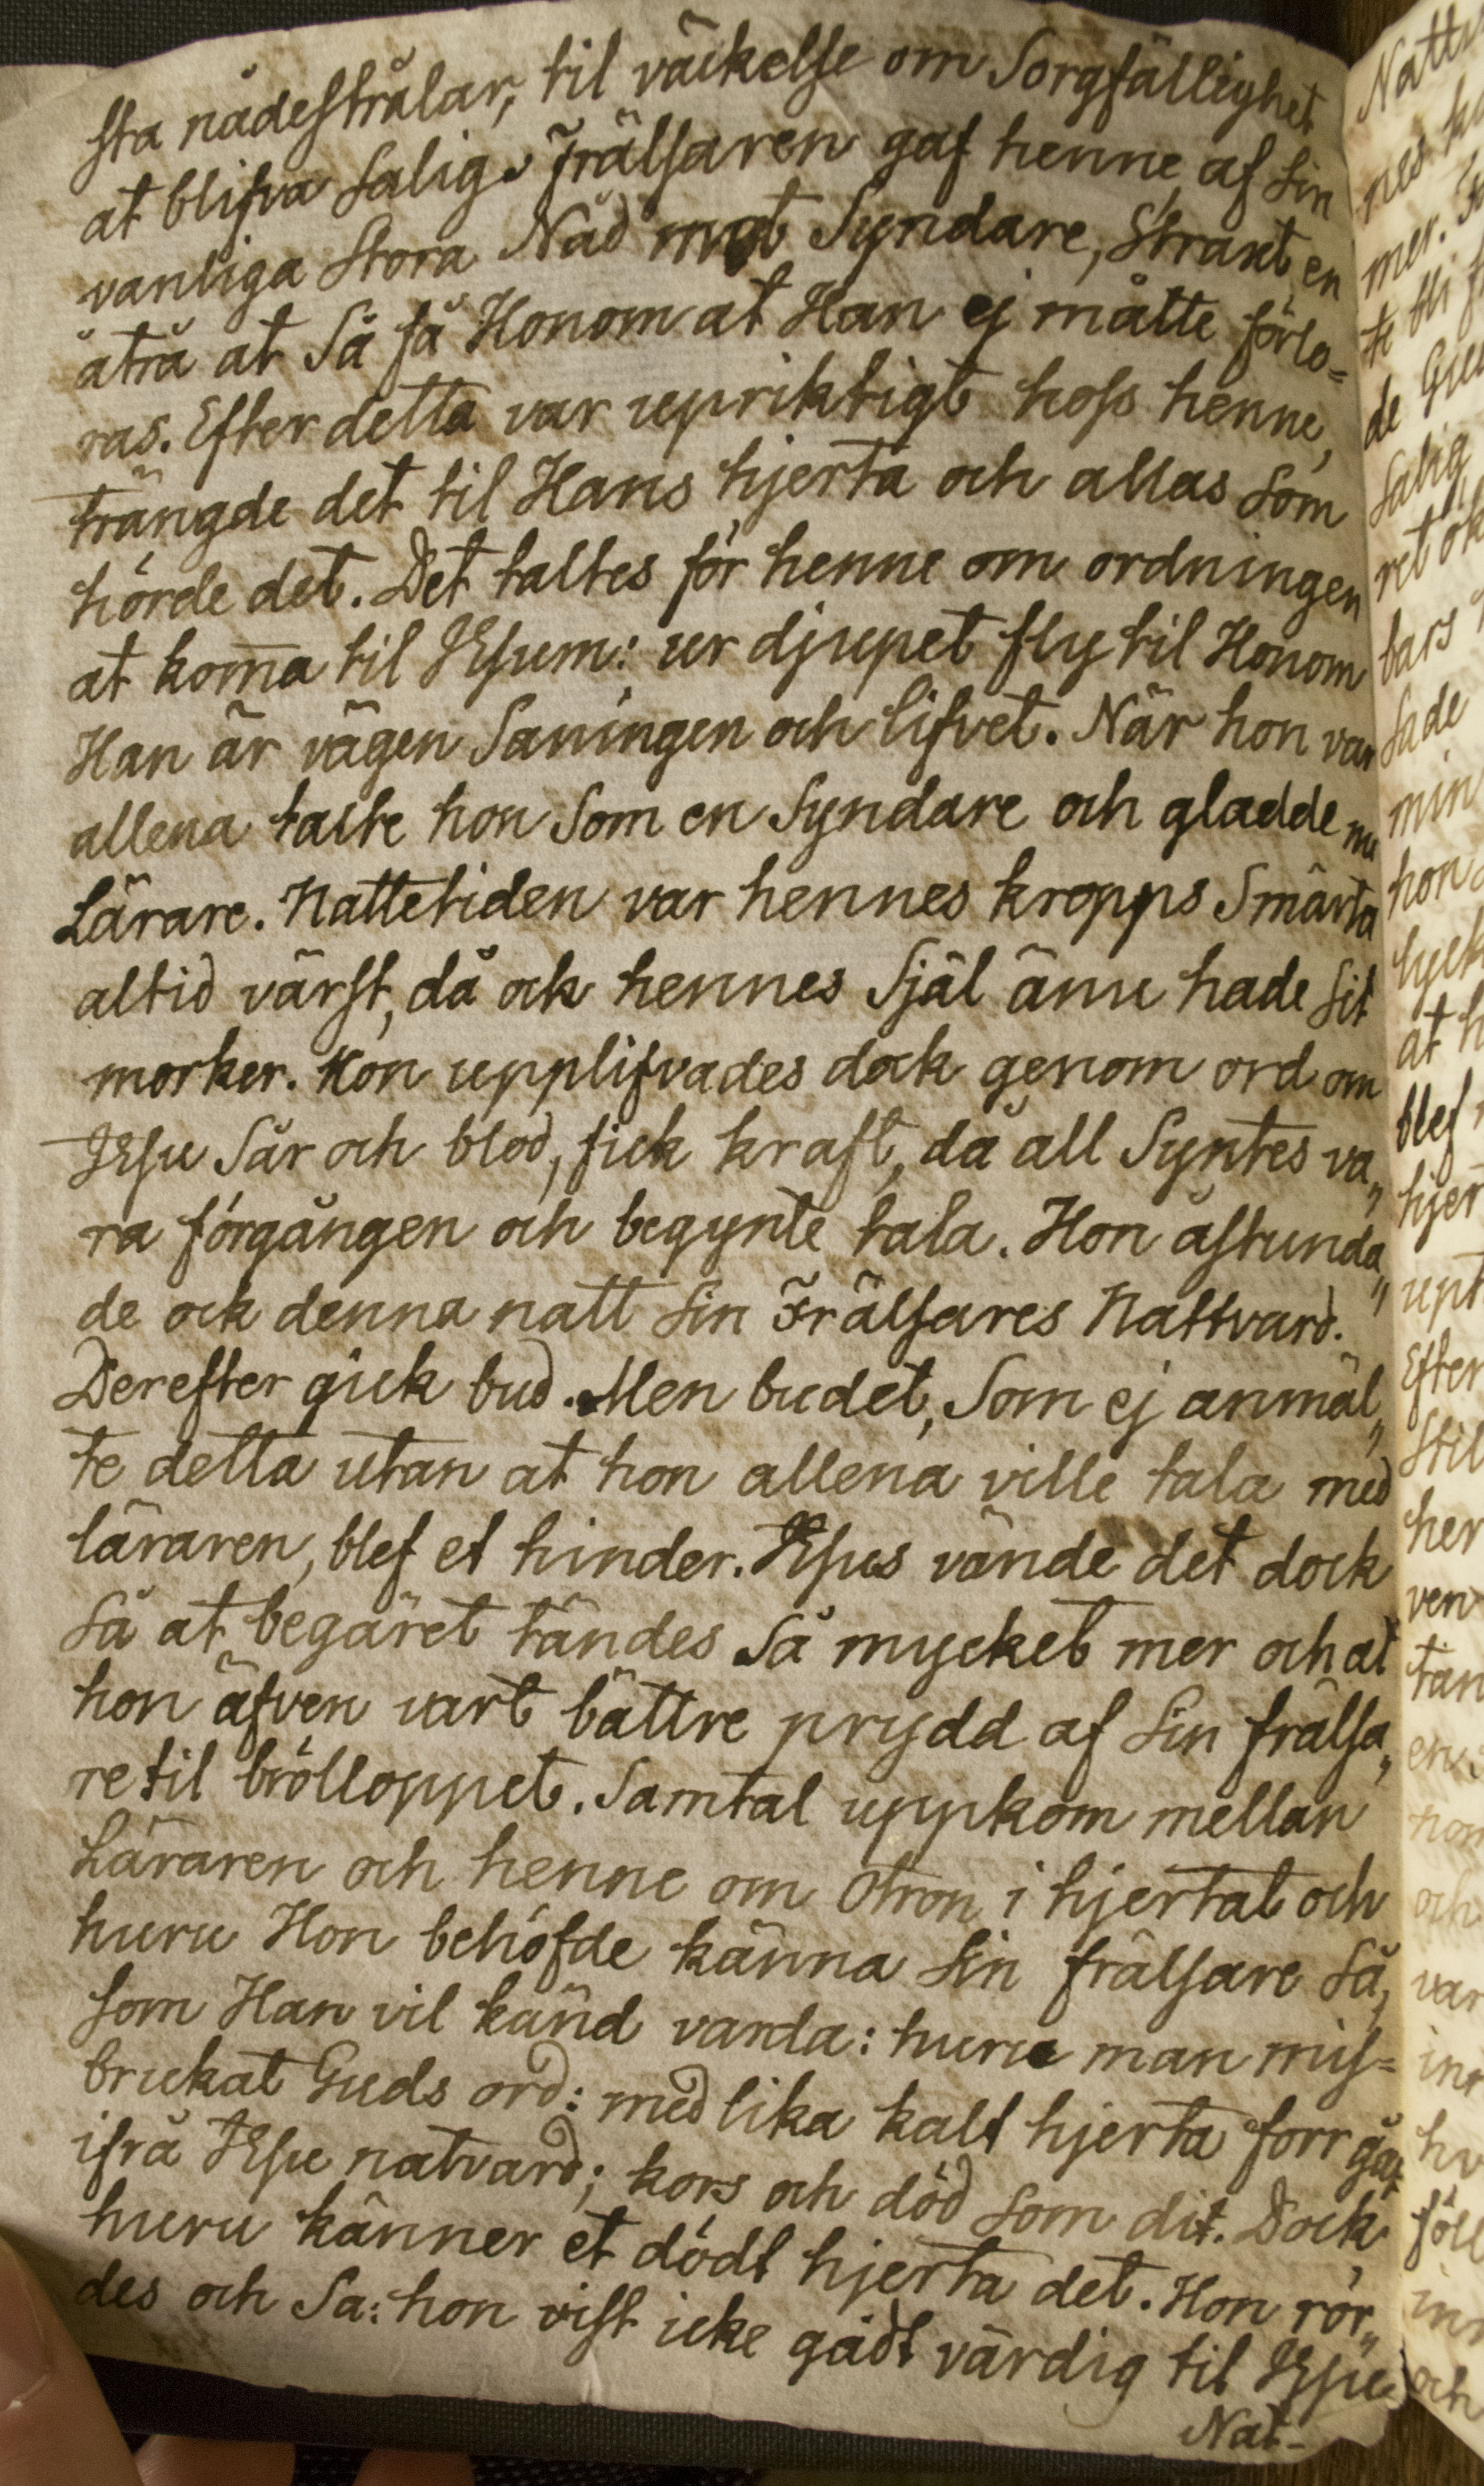 sta nådestrålar, til väckelse om Sorgfällighet
at blifva salig. Frälsaren gaf henne af sin
vanliga stora Nåd mot Syndare, Straxt en
åtrå at så få Honom at Han ej måtte förlo=
ras. Efter detta var upriktigt hoss henne,
trängde det til Hans hjerta och allas som
hörde det. Det taltes för henne om ordningen
at kom̄a til JEsum: ur djupet fly til Honom
Han är vägen Sanningen och lifvet. När hon var
allena talte hon som en Syndare och gladde nu
Lärare. Nattetiden var hennes kropps Smärta
altid värst, då ock hennes Själ än̄u hade sit
morker. Hon upplifvades dock genom ord om
JEsu Sår och blod, fick kraft, då all Syntes va„
ra förgången och begynte tala. Hon åstunda„
de ock denna natt sin Frälsares Nattvard.
Derefter gick bud. Men budet, Som ej anmäl„
te detta utan at hon allena ville tala med
läraren, blef et hinder. JEsus vände det dock
så at begäret tändes så mycket mer och at
hon äfven vart bättre prydd af sin frälsa„
re til brölloppet. Samtal uppkom mellan
Läraren och henne om Otron i hjertat och
huru Hon behöfde känna sin frälsare så,
som Han vil känd varda: huru man mis=
brukat Guds ord: med lika kalt hjerta förr gåt
ifrå JEsu natvard; kors och död som dit. Dock
huru känner et dödt hjerta det. Hon rör„
des och Sa: hon vist icke gådt värdig til JEsu
Nat-